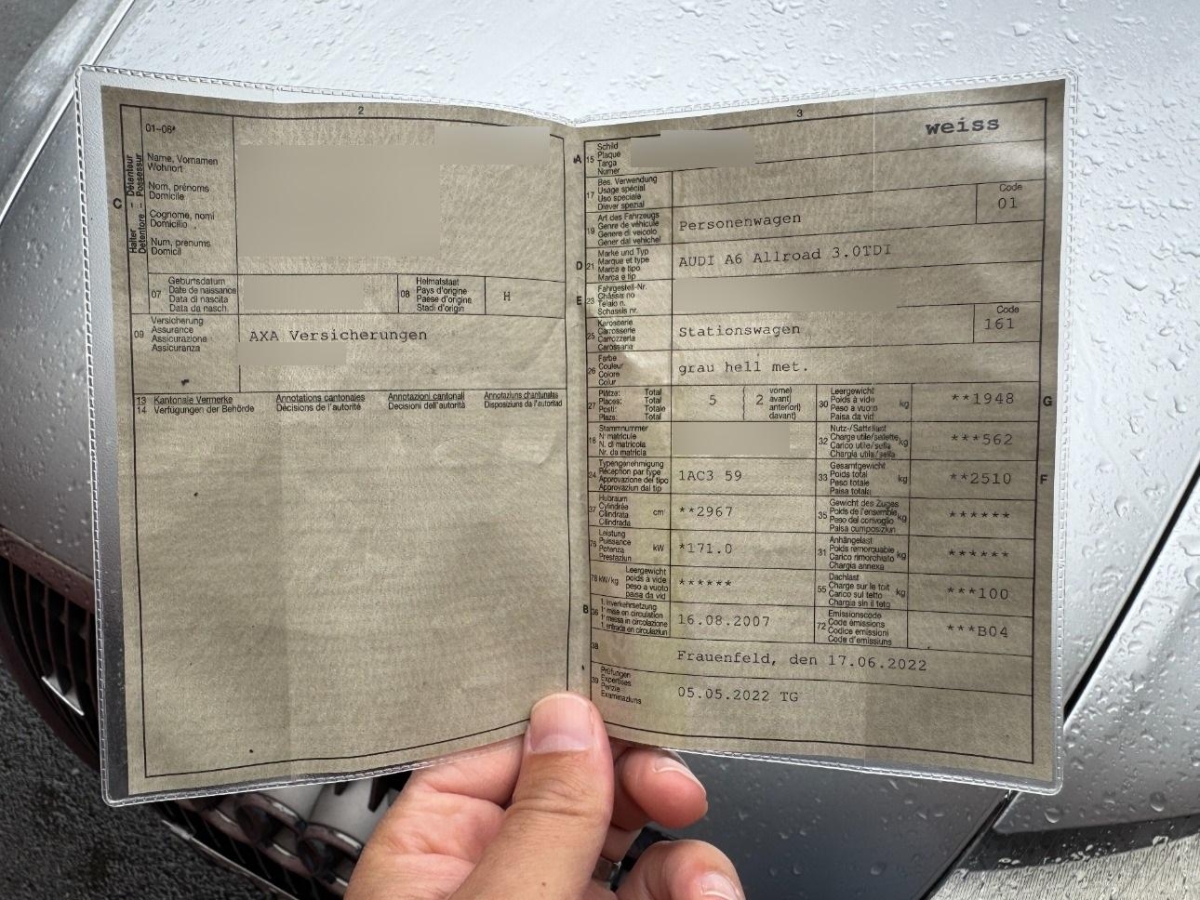 2
01-06*
C
Halter - Détenteur
Detentore - Possessur
Name, Vornamen
Wohnort
Nom, prénoms
Domicile
Cognome, nomi
Domicilio
Num, prenums
Domicil
07
Geburtsdatum
Date de naissance
Data di nascita
Data da nasch.
08
Heimatstaat
Pays d'origine
Paese d'origine
Stadi d'origin
H
09
Versicherung
Assurance
Assicurazione
Assicuranza
AXA Versicherungen
13 Kantonale Vermerke
14 Verfügungen der Behörde
Annotations cantonales
Décisions de l'autorité
Annotazioni cantonali
Decisioni dell'autorità
Annotaziuns chantunalas
Disposiziuns da l'autoritad
3
weiss
A 15
Schild
Plaque
Targa
Numer
17
Bes. Verwendung
Usage spécial
Uso speciale
Diever spezial
Code
01
19
Art des Fahrzeugs
Genre de véhicule
Genere di veicolo
Gener dal vehichel
Personenwagen
D 21
Marke und Typ
Marque et type
Marca e tipo
Marca e tip
AUDI A6 Allroad 3.0TDI
E 23
Fahrgestell-Nr.
Châssis no
Telaio n.
Schassis nr.
25
Karosserie
Carrosserie
Carrozzeria
Carossaria
Stationswagen
Code
161
26
Farbe
Couleur
Colore
Colur
grau hell met.
27
Plätze: Total
Places: Total
Posti: Totale
Plazs: Total
5
2
vorne)
avant)
anteriori)
davant)
30
Leergewicht
Poids à vide
Peso a vuoto
Paisa da vid
kg
**1948
G
18
Stammnummer
N° matricule
N. di matricola
Nr. da matricla
32
Nutz-/Sattellast
Charge utile/sellette
Carico utile/sella
Chargia utila/sella
kg
***562
24
Typengenehmigung
Réception par type
Approvazione del tipo
Approvaziun dal tip
1AC3 59
33
Gesamtgewicht
Poids total
Peso totale
Paisa totala
kg
**2510
F
37
Hubraum
Cylindrée
Cilindrata
Cilindrada
cm³
**2967
35
Gewicht des Zuges
Poids de l'ensemble
Peso del convoglio
Paisa cumposiziun
kg
******
76
Leistung
Puissance
Potenza
Prestaziun
kW
*171.0
31
Anhängelast
Poids remorquable
Carico rimorchiato
Chargia annexa
kg
******
78 kW/kg
Leergewicht
poids à vide
peso a vuoto
paisa da vid
******
55
Dachlast
Charge sur le toit
Carico sul tetto
Chargia sin il tetg
kg
***100
B 36
1. Inverkehrsetzung
1re mise en circulation
1a messa in circolazione
1. entrada en circulaziun
16.08.2007
72
Emissionscode
Code émissions
Codice emissioni
Code d'emissiuns
***B04
38
Frauenfeld, den 17.06.2022
39
Prüfungen
Expertises
Perizie
Examinaziuns
05.05.2022 TG